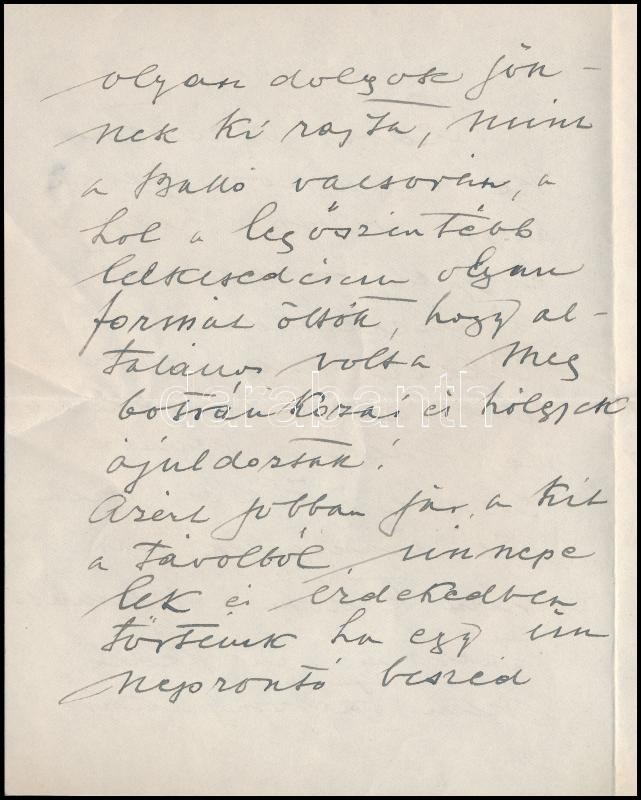 olyan dolgok jön-
nek ki rajta, mint
a Balló vacsorán, a
hol a legőszintébb
lelkesedésem olyan
formát öltött, hogy ál-
talános volt a meg
botránkozás és hölgyek
ájuldoztak!
Azért jobban jár, a kit
a távolból ünnepe
lek és érdekedben
történik ha egy ün
neprontó beszéd
darabanth